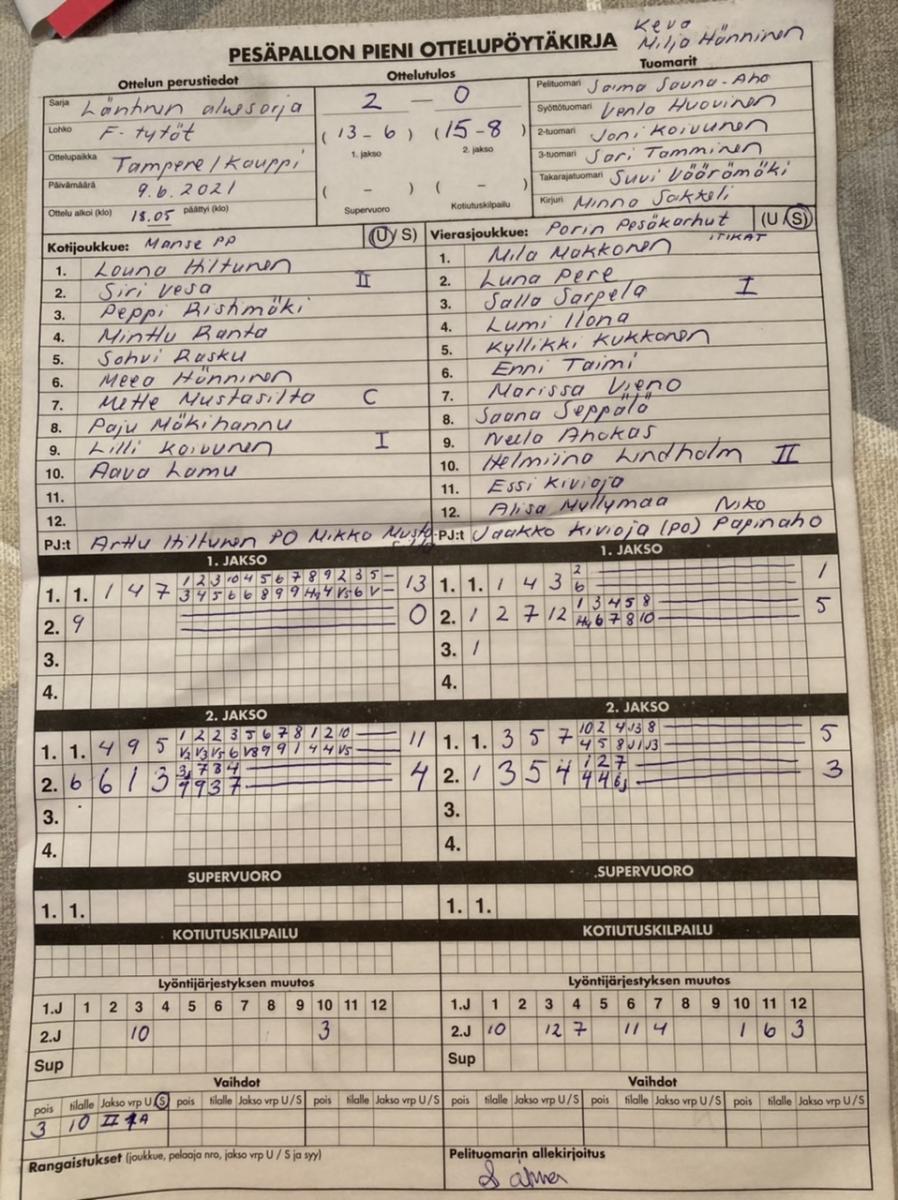 Keva
Milja Hänninen
PESÄPALLON PIENI OTTELUPÖYTÄKIRJA
Ottelun perustiedot
Sarja Länhnen aluesarja
Lohko F-tytöt
Ottelupaikka Tampere/Kauppi
Päivämäärä 9.6.2021
Ottelu alkoi (klo) 18.05 päättyi (klo)
Ottelutulos
2 - 0
(13-6) (15-8)
1. jakso 2. jakso
( - ) ( - )
Supervuoro Kotiutuskilpailu
Tuomarit
Pelituomari Saima Sauna-Aho
Syöttötuomari Venla Huovinen
2-tuomari Joni Koivunen
3-tuomari Sari Tamminen
Takarajatuomari Suvi Väärämäki
Kirjuri Minna Sakkeli
Kotijoukkue: Manse PP (U/S)
1. Louna Hiltunen
2. Siri Vesa II
3. Peppi Ristimäki
4. Minttu Ranta
5. Sohvi Rasku
6. Meea Hänninen
7. Mette Mustasilta C
8. Paju Mäkihannu
9. Lilli Koivunen I
10. Aava Lamu
11.
12.
PJ:t Arttu Hiltunen PO Mikko Musta-
Vierasjoukkue: Porin Pesäkarhut (U/S)
ITIKAT
1. Mila Makkonen
2. Luna Pere
3. Salla Sarpela I
4. Lumi Ilona
5. Kyllikki Kukkonen
6. Enni Taimi
7. Marissa Vieno
8. Saana Seppälä
9. Neela Ahokas
10. Helmiina Lindholm II
11. Essi Kivioja
12. Alisa Myllymaa Niko
PJ:t Jaakko Kivioja (PO) Papinaho
1. JAKSO
1. 1. 1 4 7 1 2 3 10 4 5 6 7 8 9 2 3 5 - 13
3 4 5 6 6 8 9 9 Hy 4 V5 6 V -
2. 9 0
3.
4.
1. JAKSO
1. 1. 1 4 3 2 1
6
2. 1 2 7 12 1 3 4 5 8 5
Hy 6 7 8 10
3. 1
4.
2. JAKSO
1. 1. 4 9 5 1 2 2 3 5 6 7 8 1 2 10 11
V2 V3 V5 6 V8 9 9 1 4 4 V5
2. 6 6 1 3 3 7 8 4 4
9 9 3 7
3.
4.
2. JAKSO
1. 1. 3 5 7 10 2 4 J13 8 5
4 5 8 J1 J3
2. 1 3 5 4 1 2 7 3
4 4 6J
3.
4.
SUPERVUORO
1. 1.
SUPERVUORO
1. 1.
KOTIUTUSKILPAILU
KOTIUTUSKILPAILU
Lyöntijärjestyksen muutos
1.J 1 2 3 4 5 6 7 8 9 10 11 12
2.J 10 3
Sup
Lyöntijärjestyksen muutos
1.J 1 2 3 4 5 6 7 8 9 10 11 12
2.J 10 12 7 11 4 1 6 3
Sup
Vaihdot
pois tilalle Jakso vrp U/S pois tilalle Jakso vrp U/S pois tilalle Jakso vrp U/S
3 10 II 1A
Vaihdot
pois tilalle Jakso vrp U/S pois tilalle Jakso vrp U/S pois tilalle Jakso vrp U/S
Rangaistukset (joukkue, pelaaja nro, jakso vrp U / S ja syy)
Pelituomarin allekirjoitus